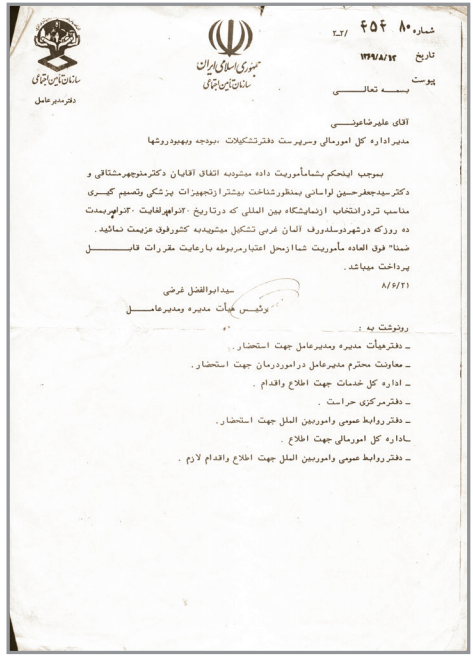 سازمان تأمین اجتماعی
دفتر مدیر عامل
جمهوری اسلامی ایران
سازمان تأمین اجتماعی
شماره
تاریخ ۱۳۶۹/۸/۱۲
پیوست
بسمه تعالی
آقای علیرضا عونی
مدیر اداره کل امور مالی و سرپرست دفتر تشکیلات ، بودجه وبهبودروشها
بموجب اینحکم بشما مأموریت داده میشود به اتفاق آقایان دکترمنوچهر مشتاقی و
دکترسید جعفرحسین لواسانی بمنظورشناخت بیشترازتجهیزات پزشکی وتصمیم گیری
مناسب تر در انتخاب ازنمایشگاه بین المللی که درتاریخ ۲۰نوامبرلغایت ۳۰نوامبر بمدت
ده روزکه درشهر دوسلدورف آلمان غربی تشکیل میشود به کشور فوق عزیمت نمائید .
ضمنا" فوق العاده مأموریت شما از محل اعتبارمربوطه بارعایت مقررات قابل
پرداخت میباشد .
۸/۶/۲۱
سید ابوالفضل غرضی
رئیس هیأت مدیره ومدیرعامل
رونوشت به :
ـ دفترهیأت مدیره ومدیرعامل جهت استحضار .
ـ معاونت محترم مدیرعامل درامور درمان جهت استحضار .
ـ اداره کل خدمات جهت اطلاع واقدام .
ـ دفترمرکزی حراست .
ـ دفتر روابط عمومی وامور بین الملل جهت استحضار .
ـ اداره کل امورمالی جهت اطلاع .
ـ دفتر روابط عمومی وامور بین الملل جهت اطلاع واقدام لازم .